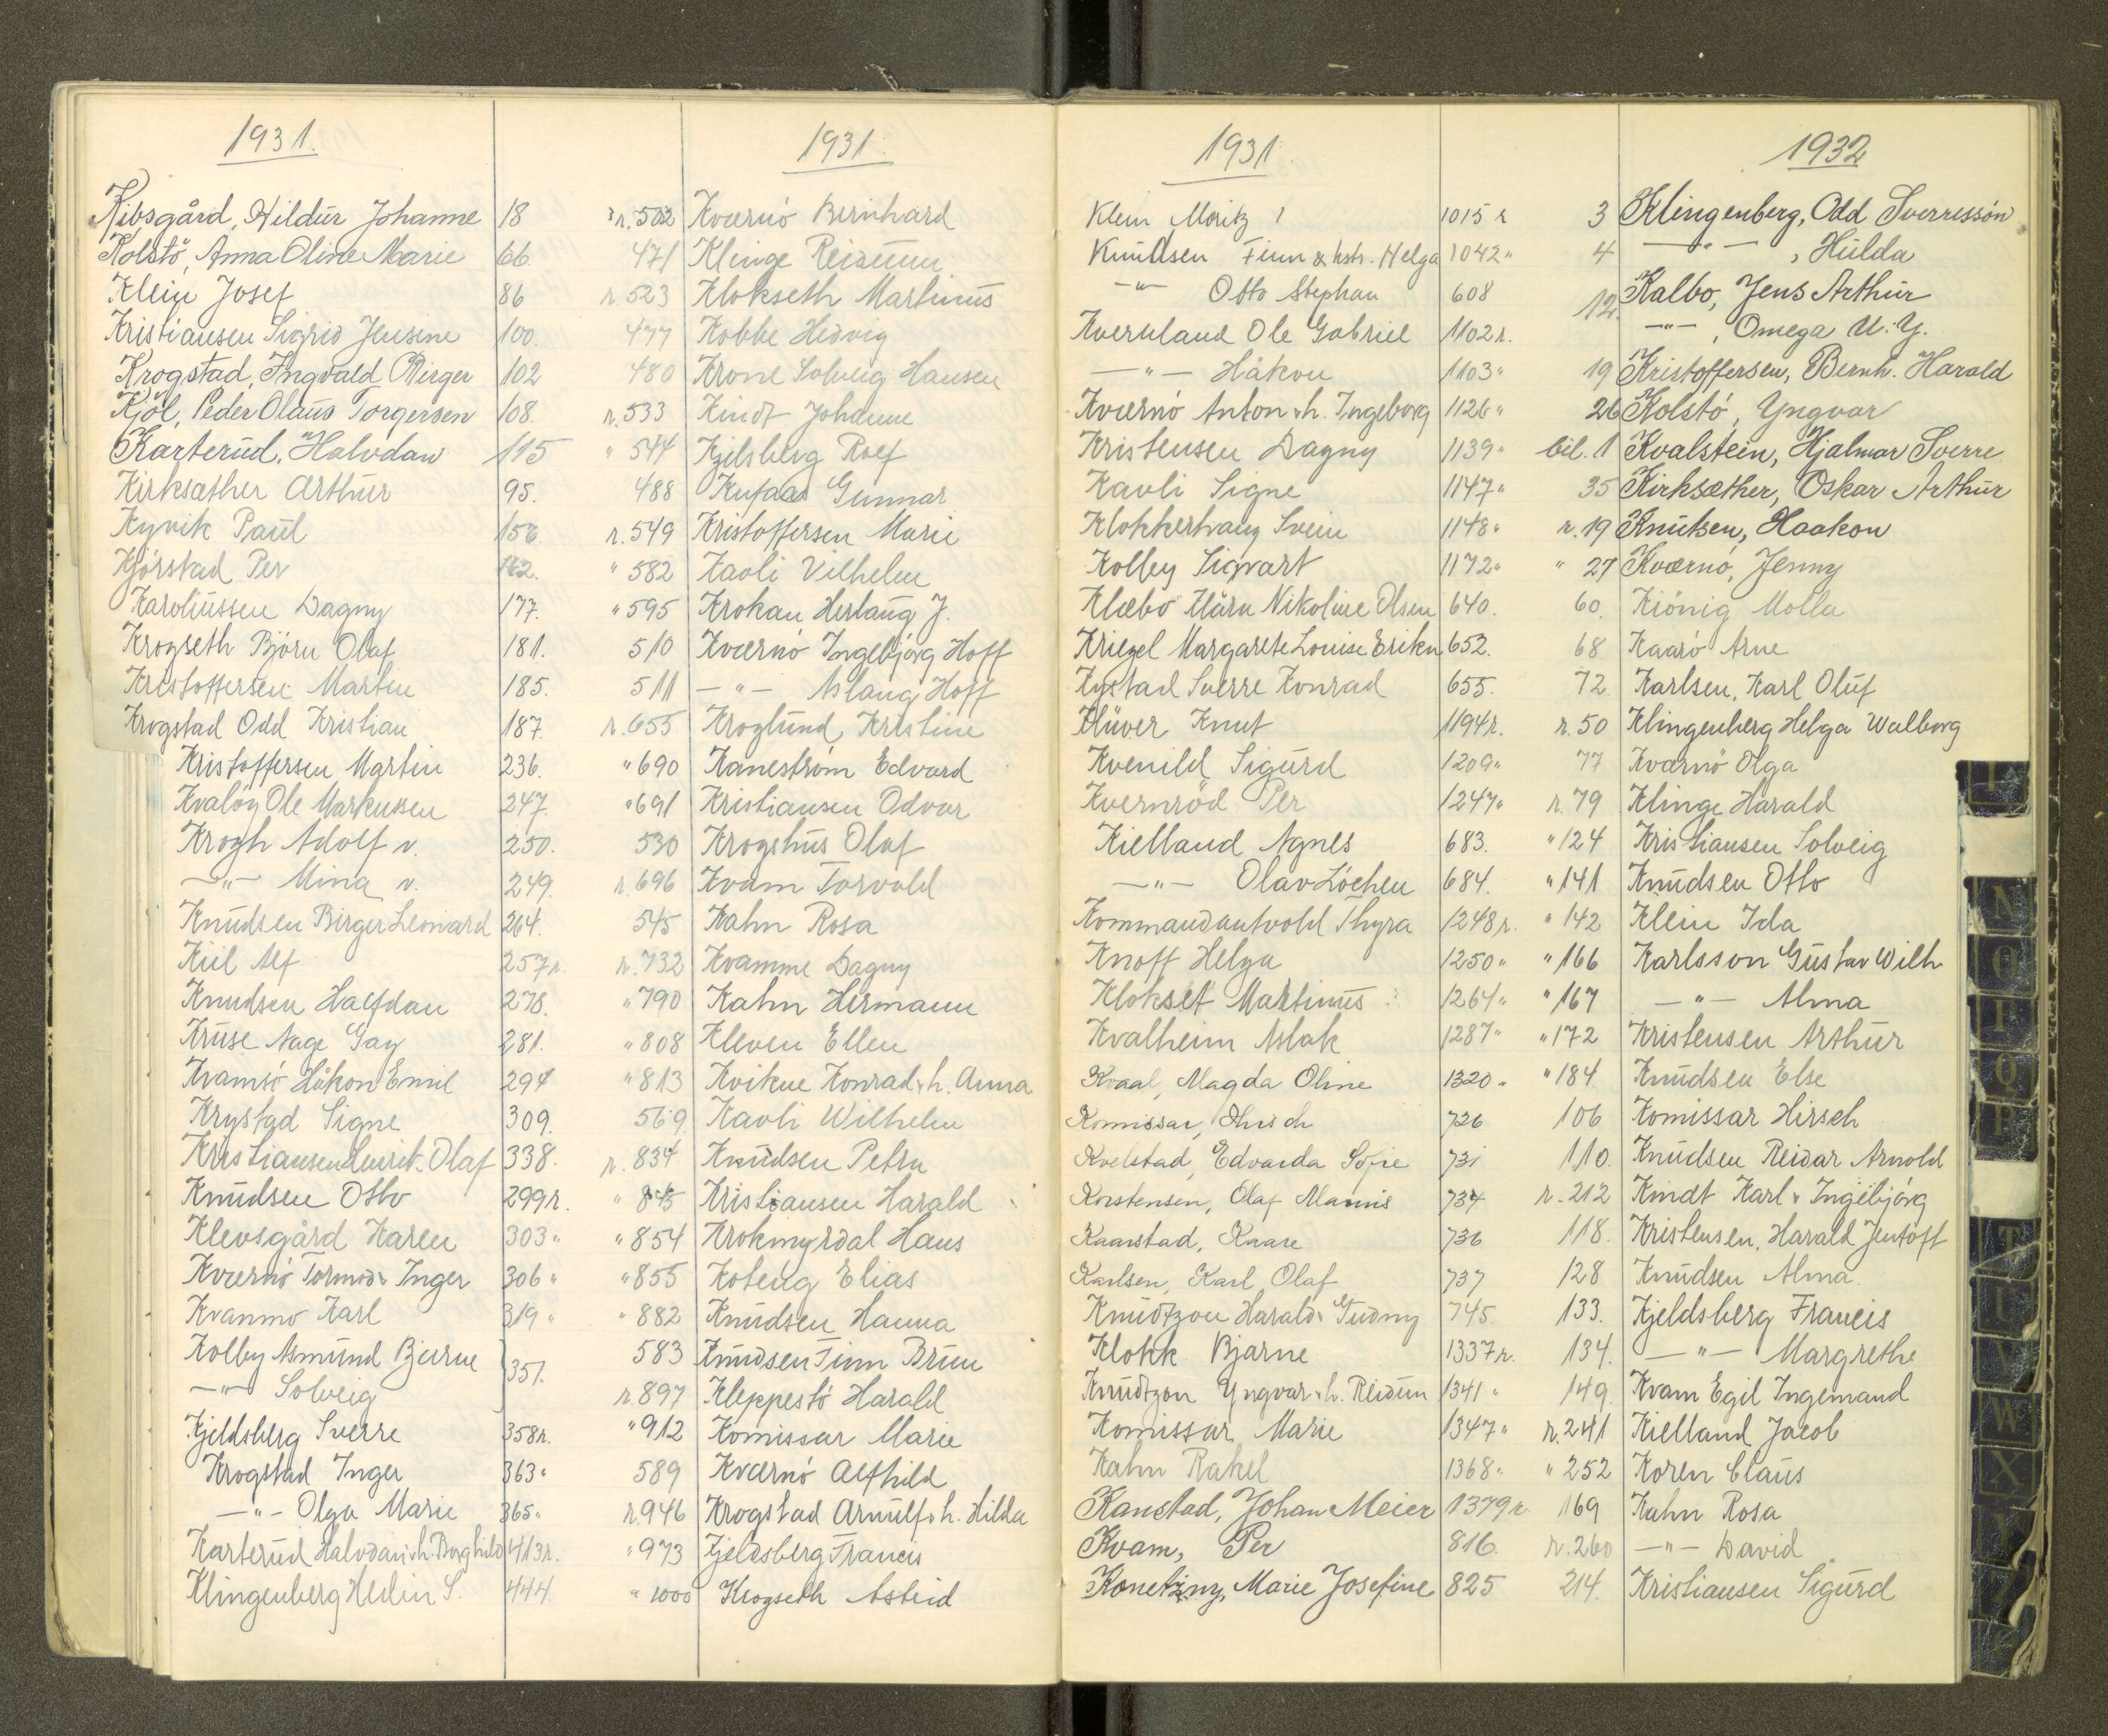 1931.
Kibsgård, Hildur Johanne 18
Kolstö, Anna Oline Marie 66
Klein Josef 86
Kristiansen Sigrid Jensine 100.
Krogstad, Ingvald Birger 102
Kjöl, Peder Olaus Torgersen 108.
Karterud, Halvdan 115
Kirksæther Arthur 95.
Kyvik Paul 156.
Kjörstad Per
Karoliussen Dagny 177.
Krogseth Björn Olaf 181.
Kristoffersen Martin 185.
Krogstad Odd Kristian 187.
Kristoffersen Martin 236.
Kvalöy Ole Markussen 247.
Krogh Adolf v. 250.
—"— Mina v. 249.
Knudsen Birger Leonard 264.
Kiil Alf 257r.
Knudsen Halfdan 278.
Kruse Aage Gay 281.
Kvamsö Håkon Emil 294
Krystad Signe 309.
Kristiansen Olaf 338.
Knudsen Otto 299r.
Klevsgård Karen 303"
Kværnö Tormod & Inger 306"
Kvanmo Karl 319"
Kolby Asmund Bjarne } 351.
—"— Solveig
Kjeldsberg Sverre 358r.
Krogstad Inger 363"
—"— Olga Marie 365"
Karterud Halvdan & h. Borghild 413r.
Klingenberg S. 444.
1931.
r. 502 Kværnö Bernhard
471 Klinge Reidunn
r. 523 Klokseth Martinus
477 Kobbe Hedvig
480 Krone Solveig Hansen
r. 533 Kindt Johanne
" 544 Kjelsberg Rolf
488 Gunnar
r. 549 Kristoffersen Marie
" 582 Kavli Vilhelm
" 595 Krokan Herlaug J.
510 Kværnö Ingebjörg Hoff
511 —"— Aslaug Hoff
r. 655 Kroglund Kristine
" 690 Kaneström Edvard
" 691 Kristiansen Odvar
530 Krogshus Olaf
r. 696 Kvam Torvald
545 Kahn Rosa
r. 732 Kvamme Dagny
" 790 Kahn Hermann
" 808 Kleven Ellen
" 813 Kvikne Konrad & h. Anna
569. Kavli Wilhelm
r. 834 Knudsen Petra
" 845 Kristiansen Harald
" 854 Krokmyrdal Hans
" 855 Koteng Elias
" 882 Knudsen Hanna
583 Knudsen Finn Bruu
r. 897 Kleppestö Harald
" 912 Komissar Marie
589 Kværnö Alfhild
r. 946 Krogstad Arnulf & h. Hilda
" 973 Kjeldsberg Francis
" 1000 Krogseth Astrid
1931
Klein Moritz 1015 r
Knudsen Finn & hstr. Helga 1042"
—"— Otto Stephan 608
Kvernland Ole Gabriel 1102r.
—"— Håkon 1103"
Kværnö Anton & h. Ingeborg 1126"
Kristensen Dagny 1139"
Kavli Signe 1147"
Klokkerhaug Svein 1148"
Kolby Sigvart 1172"
Klæbo Klara Nikoline Olsen 640.
Kriegel Margarete Louise Erikn 652.
Kystad Sverre Konrad 655.
Klüver Knut 1194r.
Kvenild Sigurd 1209"
Kvernröd Per 1247"
Kielland Agnes 683.
—"— Olav Löchen 684.
Kommandantvold Thyra 1248r.
Knoff Helga 1250"
Klokset Martinus 1264"
Kvalheim Aslak 1287"
Kvaal, Magda Oline 1320"
Komissar, Hirsch 726
Kvelstad, Edvarda Sofie 731
Korstensen, Olaf 734
Kaarstad, Kaare 736
Karlsen, Karl Olaf 737
Knudtzon Harald & Gudny 745.
Klokk Bjarne 1337r.
Knudtzon Yngvar & h. Reidun 1341"
Komissar Marie 1347"
Kahn Rakel 1368"
Kanstad, Johan Meier 1379r.
Kvam, Per 816.
Konetzny, Marie Josefine 825
1932
3 Klingenberg, Odd Sverressön
4 —"—, Hulda
12. Kalbo, Jens Arthur
—"—, Omega U. Y.
19 Kristoffersen, Bernh. Harald
26 Kolstö, Yngvar
bil. 1 Kvalstein, Hjalmar Sverre
35 Kirksæther, Oskar Arthur
r. 19 Knutsen, Haakon
" 27 Kværnö, Jenny
60. Kiönig Molla
68 Kaarö Arne
72. Karlsen, Karl Oluf
r. 50 Klingenberg Helga Walborg
77 Kværnö Olga
r. 79 Klinge Harald
" 124 Kristiansen Solveig
" 141 Knudsen Otto
" 142 Klein Ida
" 166 Karlsson Gustav Wilh
" 167 —"— Alma
" 172 Kristensen Arthur
" 184 Knudsen Else
106 Komissar Hirsch
110. Knudsen Reidar Arnold
r. 212 Kindt Karl & Ingebjörg
118. Kristensen, Harald Jentoft
128 Knudsen Alma
133. Kjeldsberg Francis
134. —"— Margrethe
149. Kvam Egil Ingemand
r. 241 Kielland Jacob
" 252 Koren Claus
169 Kahn Rosa
r. 260 —"— David
214. Kristiansen Sigurd
N
O
P
Q
T
U
V
W
X
Y
Z